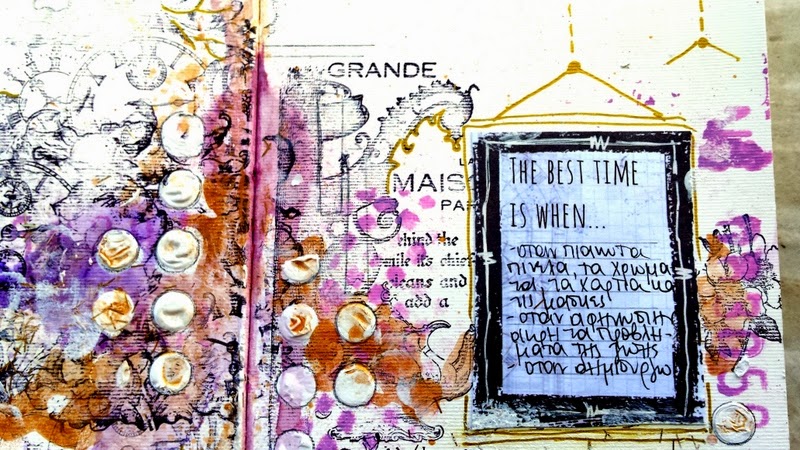 GRANDE
MAIS
PAR
ehind the
mile its chief
cleans and
add a
THE BEST TIME
IS WHEN...
-όταν πιάνω τα
πινέλα, τα χρώμα
τα τα χαρτιά
τις μάσκες
-όταν αφήνω
πίσω τα προβλή-
ματα της ζωής
-όταν δημιουργώ